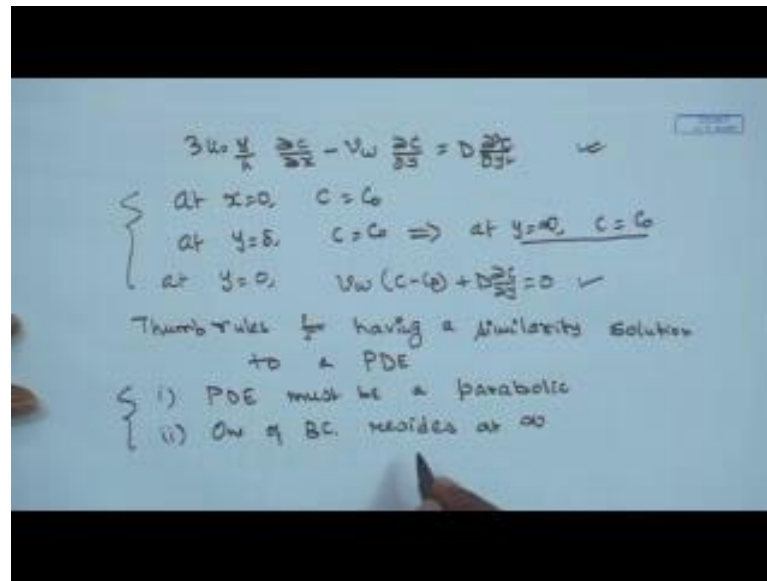 3u₀ y/h ∂c/∂x - Vw ∂c/∂y = D ∂²c/∂y²
at x=0, c = c₀
at y=δ, c = c₀ ⇒ at y=∞, c = c₀
at y=0, Vw (c-cp) + D ∂c/∂y = 0
Thumb rules for having a similarity solution
to a PDE
i) PDE must be a parabolic
ii) One of BC. resides at ∞